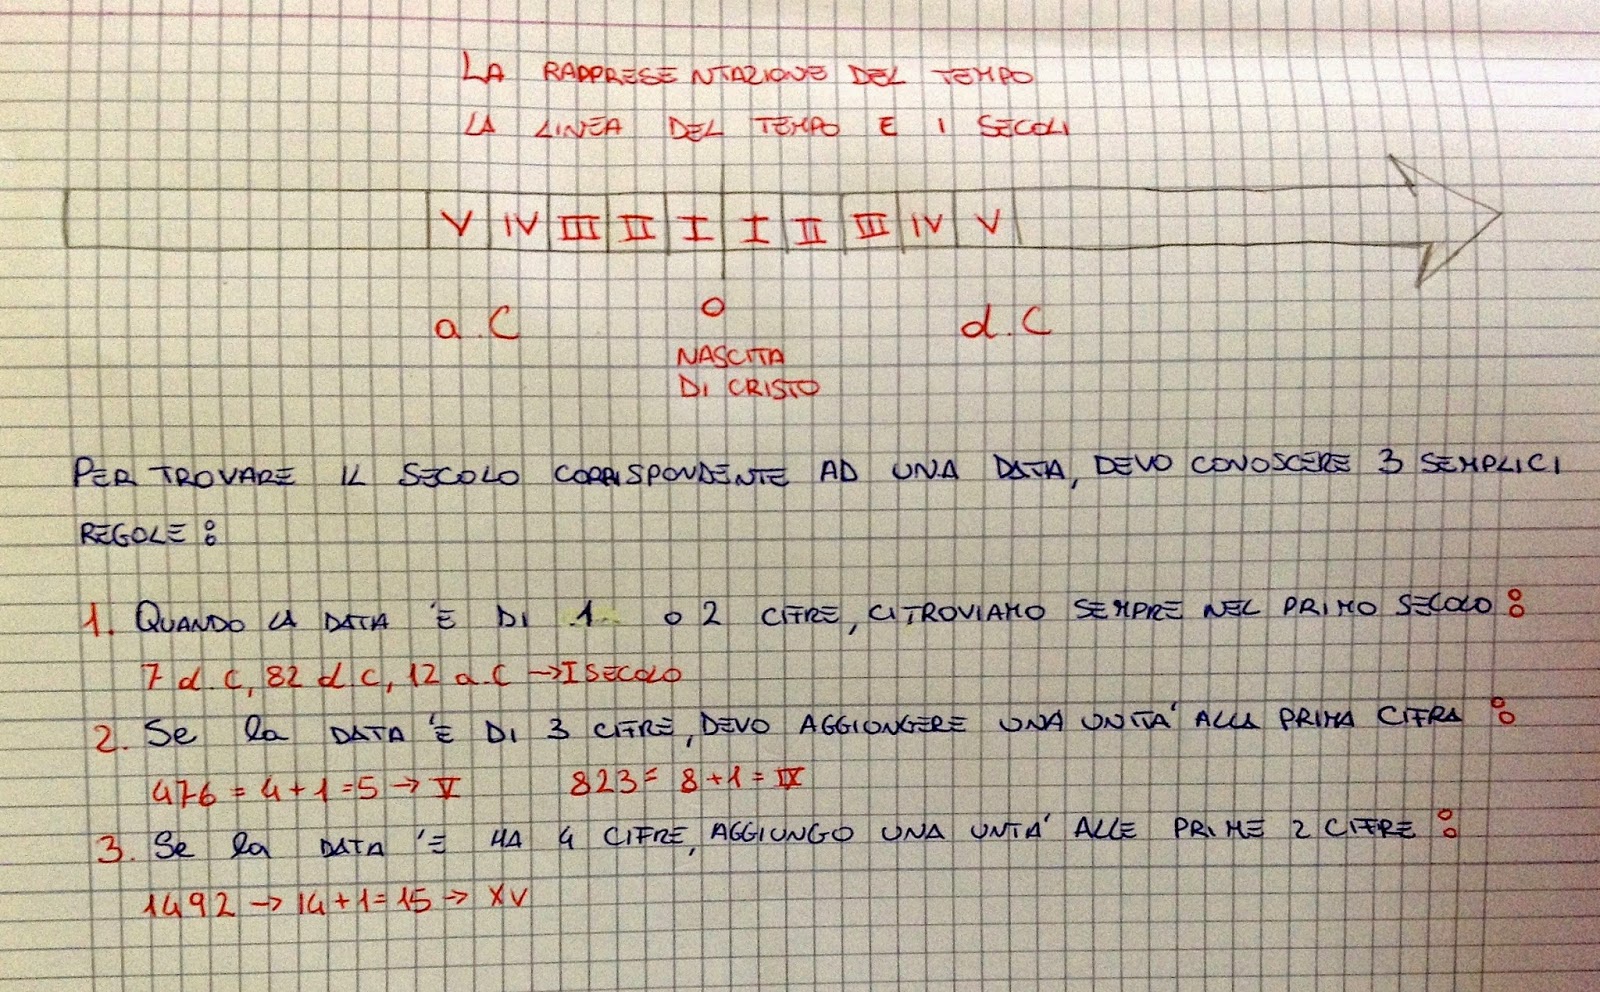 LA RAPPRESENTAZIONE DEL TEMPO
LA LINEA DEL TEMPO E I SECOLI
V IV III II I I II III IV V
a.C O d.C
NASCITA
DI CRISTO
PER TROVARE IL SECOLO CORRISPONDENTE AD UNA DATA, DEVO CONOSCERE 3 SEMPLICI
REGOLE:
1. QUANDO LA DATA 'E DI 1 O 2 CIFRE, CI TROVIAMO SEMPRE NEL PRIMO SECOLO:
7 d.C, 82 d C, 12 a.C → I SECOLO
2. Se la DATA 'E DI 3 CIFRE, DEVO AGGIUNGERE UNA UNITA' ALLA PRIMA CIFRA:
476 = 4+1=5 → V 823= 8+1= IX
3. Se la DATA 'E HA 4 CIFRE, AGGIUNGO UNA UNTA' ALLE PRIME 2 CIFRE:
1492 → 14+1=15 → XV